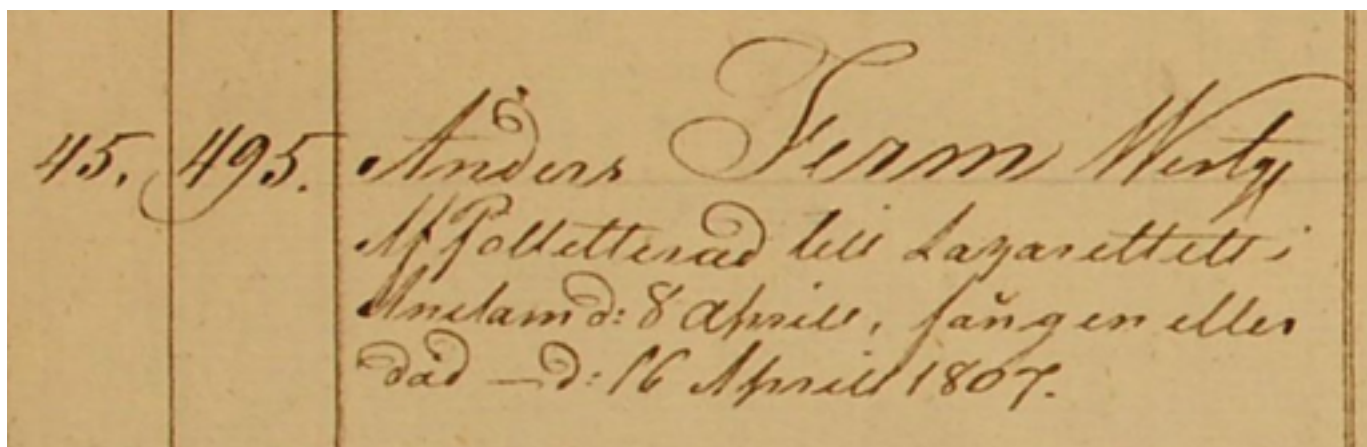 45. 495. Anders Ferm Westg
Af Polletterad till Lazarettet i
Anclam d: 8 Aprill, fången eller
död — d: 16 Aprill 1807.